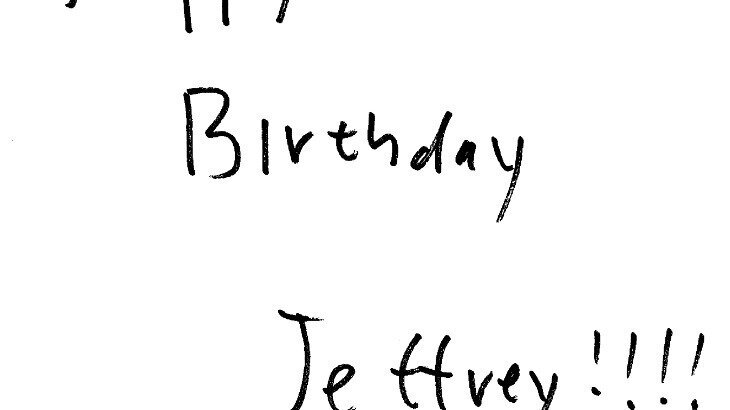 Birthday
Jeffrey!!!!